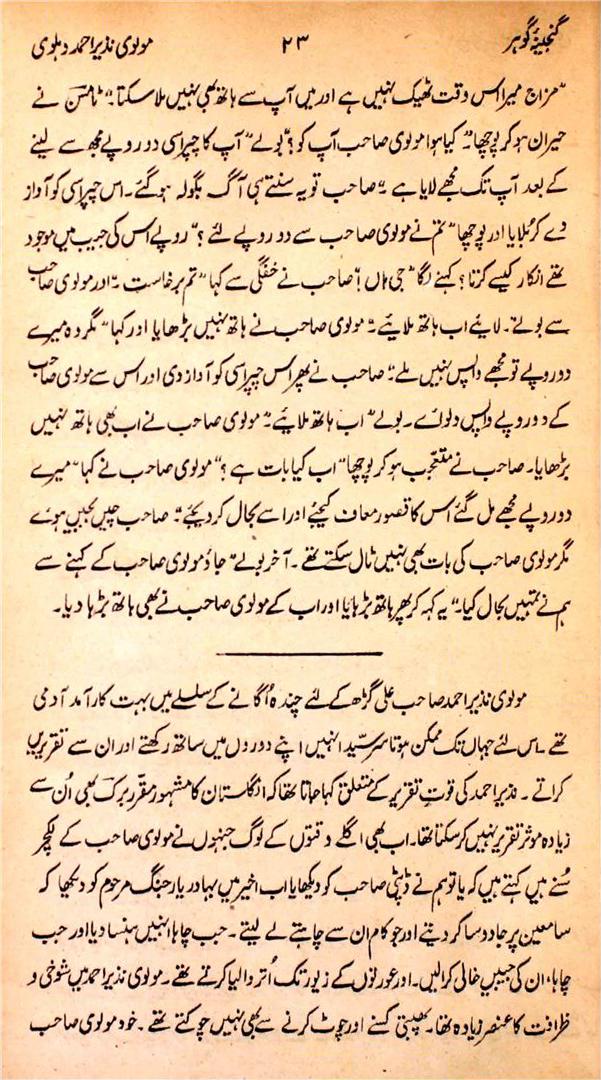 گنجینۂ گوہر ۲۳ مولوی نذیر احمد دہلوی
"مزاج میرا اس وقت ٹھیک نہیں ہے اور میں آپ سے ہاتھ بھی نہیں ملا سکتا"۔ ٹامسن نے
حیران ہو کر پوچھا "کیا ہوا مولوی صاحب آپ کو؟" بولے "آپ کا چپراسی دو روپے مجھ سے لینے
کے بعد آپ تک مجھے لایا ہے"۔ صاحب تو یہ سنتے ہی آگ بگولہ ہو گئے۔ اس چپراسی کو آواز
دے کر بلایا اور پوچھا "تم نے مولوی صاحب سے دو روپے لئے؟" روپے اس کی جیب میں موجود
تھے انکار کیسے کرتا؟ کہنے لگا "جی ہاں!" صاحب نے خفگی سے کہا "تم برخاست"۔ اور مولوی صاحب
سے بولے "لایئے اب ہاتھ ملایئے"۔ مولوی صاحب نے ہاتھ نہیں بڑھایا اور کہا "مگر وہ میرے
دو روپے تو مجھے واپس نہیں ملے"۔ صاحب نے پھر اس چپراسی کو آواز دی اور اس سے مولوی صاحب
کے دو روپے واپس دلوائے۔ بولے "اب ہاتھ ملایئے"۔ مولوی صاحب نے اب بھی ہاتھ نہیں
بڑھایا۔ صاحب نے متعجب ہو کر پوچھا "اب کیا بات ہے؟" مولوی صاحب نے کہا "میرے
دو روپے مجھے مل گئے اس کا قصور معاف کیجئے اور اسے بحال کر دیجئے"۔ صاحب چیں بجبیں ہوئے
مگر مولوی صاحب کی بات بھی نہیں ٹال سکتے تھے۔ آخر بولے "جاؤ مولوی صاحب کے کہنے سے
ہم نے تمہیں بحال کیا"۔ یہ کہہ کر پھر ہاتھ بڑہایا اور اب کے مولوی صاحب نے بھی ہاتھ بڑہا دیا۔
مولوی نذیر احمد صاحب علی گڑھ کے لئے چندہ اُگانے کے سلسلے میں بہت کار آمد آدمی
تھے۔ اس لئے جہاں تک ممکن ہوتا سر سیّد انہیں اپنے دوروں میں ساتھ رکھتے اور ان سے تقریریں
کراتے۔ نذیر احمد کی قوتِ تقریر کے متعلق کہا جاتا تھا کہ انگلستان کا مشہور مقرّر برک بھی اُن سے
زیادہ موثر تقریر نہیں کر سکتا تھا۔ اب بھی اگلے وقتوں کے لوگ جنہوں نے مولوی صاحب کے لکچر
سُنے ہیں کہتے ہیں کہ یا تو ہم نے ڈپٹی صاحب کو دیکھا یا اب اخیر میں بہادر یار جنگ مرحوم کو دیکھا کہ
سامعین پر جادو سا کر دیتے اور جو کام ان سے چاہتے لے لیتے۔ جب چاہا انہیں ہنسا دیا اور جب
چاہا، ان کی جیبیں خالی کرالیں۔ اور عورتوں کے زیور تک اُتروا لیا کرتے تھے۔ مولوی نذیر احمد میں شوخی و
ظرافت کا عنصر زیادہ تھا۔ پھبتی کسنے اور چوٹ کرنے سے بھی نہیں چوکتے تھے۔ خود مولوی صاحب